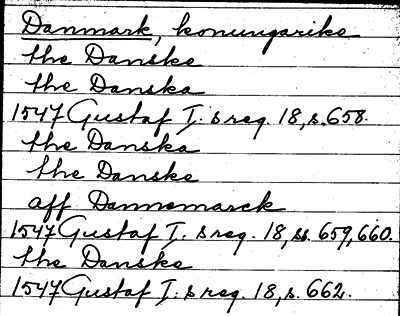 Danmark, konungarike
the Danske
the Danska
1547 Gustaf I:s reg. 18, s. 658.
the Danska
the Danske
aff Dannemarck
1547 Gustaf I:s reg. 18, ss. 659, 660.
the Danske
1547 Gustaf I:s reg. 18, s. 662.